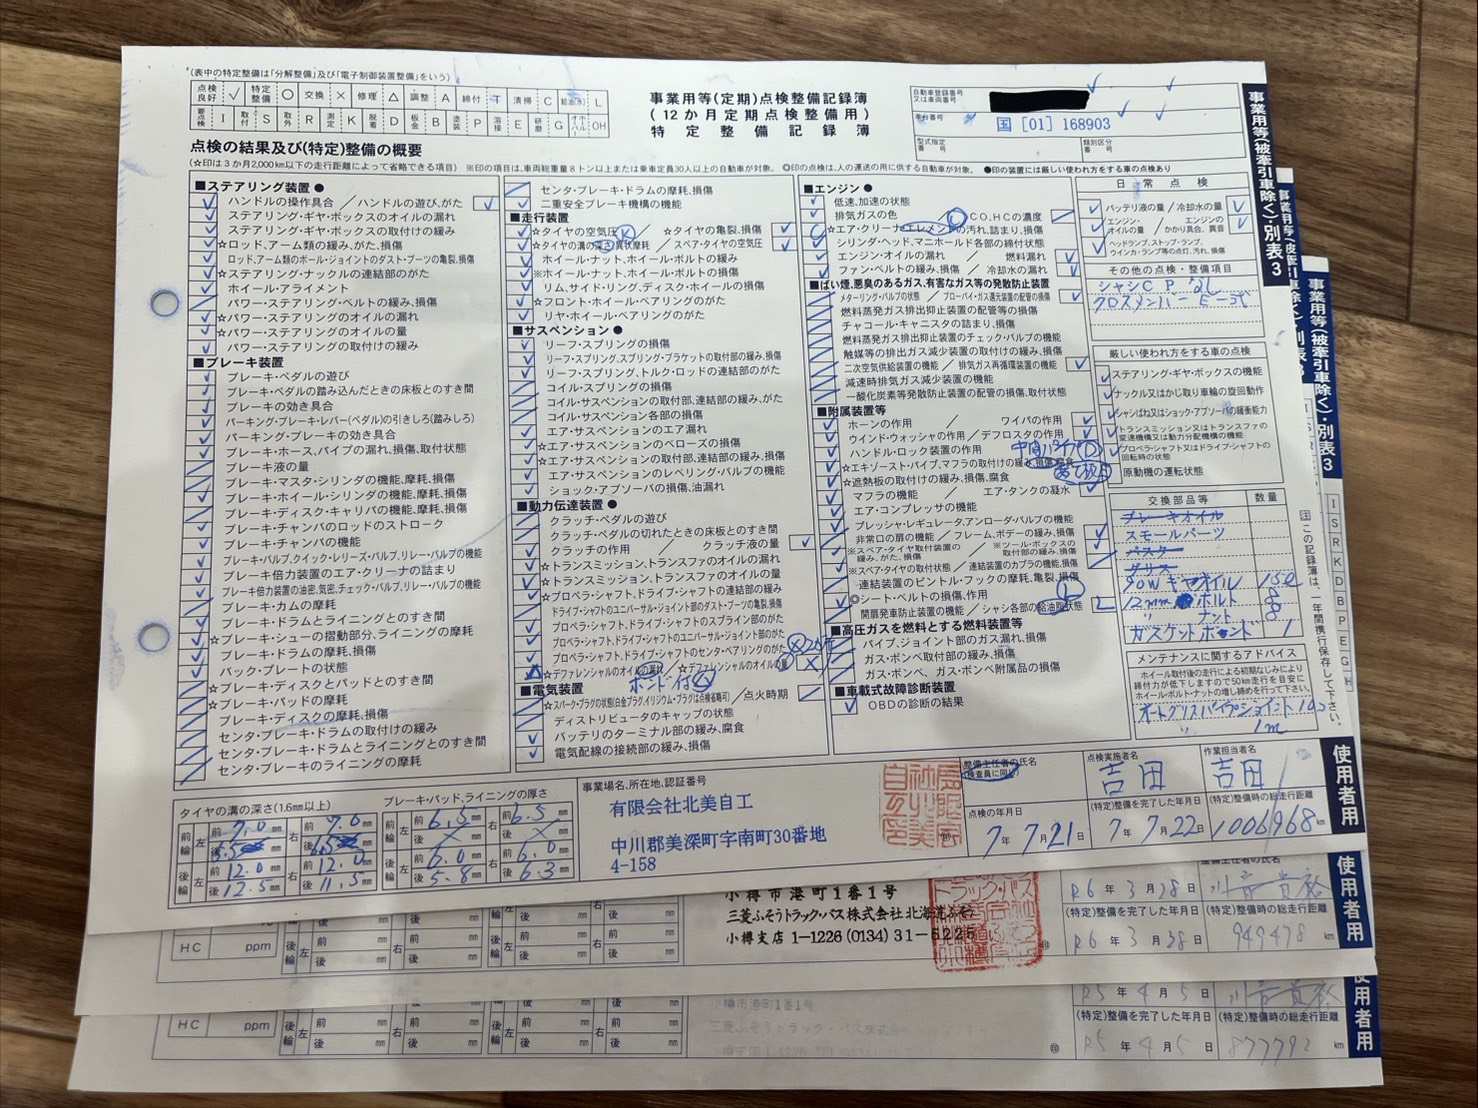 (表中の特定整備は「分解整備」及び「電子制御装置整備」をいう)
点検良好 ✓ 特定整備 ○ 交換 × 修理 △ 調整 A 締付 T 清掃 C 給油(水) L
要点検 I 取付 S 取外 R 測定 K 脱着 D 板金 B 塗装 P 溶接 E 研磨 G オーバーホール OH
事業用等(定期)点検整備記録簿
(12か月定期点検整備用)
特定整備記録簿
自動車登録番号又は車両番号
車台番号
国[01]168903
型式指定番号
類別区分番号
事業用等(被牽引車除く)・別表3
点検の結果及び(特定)整備の概要
(☆印は3か月2,000km以下の走行距離によって省略できる項目) ※印の項目は、車両総重量8トン以上または乗車定員30人以上の自動車が対象。 ◎印の点検は、人の運送の用に供する自動車が対象。 ●印の装置には厳しい使われ方をする車の点検あり
■ステアリング装置●
ハンドルの操作具合 / ハンドルの遊び、がた
ステアリング・ギヤ・ボックスのオイルの漏れ
ステアリング・ギヤ・ボックスの取付の緩み
☆ロッド、アーム類の緩み、がた、損傷
ロッド、アーム類のボール・ジョイントのダスト・ブーツの亀裂、損傷
☆ステアリング・ナックルの連結部のがた
ホイール・アライメント
パワー・ステアリング・ベルトの緩み、損傷
☆パワー・ステアリングのオイルの漏れ
☆パワー・ステアリングのオイルの量
パワー・ステアリングの取付けの緩み
■ブレーキ装置
ブレーキ・ペダルの遊び
ブレーキ・ペダルの踏み込んだときの床板とのすき間
ブレーキの効き具合
パーキング・ブレーキ・レバー(ペダル)の引きしろ(踏みしろ)
パーキング・ブレーキの効き具合
ブレーキ・ホース、パイプの漏れ、損傷、取付状態
ブレーキ液の量
ブレーキ・マスタ・シリンダの機能、摩耗、損傷
ブレーキ・ホイール・シリンダの機能、摩耗、損傷
ブレーキ・ディスク・キャリパの機能、摩耗、損傷
ブレーキ・チャンバのロッドのストローク
ブレーキ・チャンバの機能
ブレーキ・バルブ、クイック・レリーズ・バルブ、リレー・バルブの機能
ブレーキ倍力装置のエア・クリーナの詰まり
ブレーキ倍力装置の油密、気密、チェック・バルブ、リレー・バルブの機能
ブレーキ・カムの摩耗
ブレーキ・ドラムとライニングとのすき間
☆ブレーキ・シューの摺動部分、ライニングの摩耗
ブレーキ・ドラムの摩耗、損傷
バック・プレートの状態
☆ブレーキ・ディスクとパッドとのすき間
☆ブレーキ・パッドの摩耗
ブレーキ・ディスクの摩耗、損傷
センタ・ブレーキ・ドラムの取付けの緩み
センタ・ブレーキ・ドラムとライニングとのすき間
センタ・ブレーキのライニングの摩耗
センタ・ブレーキ・ドラムの摩耗、損傷
二重安全ブレーキ機構の機能
■走行装置
☆タイヤの空気圧 / ☆タイヤの亀裂、損傷
☆タイヤの溝の深さ、異状摩耗 / スペア・タイヤの空気圧
ホイール・ナット、ホイール・ボルトの緩み
※ホイール・ナット、ホイール・ボルトの損傷
リム、サイド・リング、ディスク・ホイールの損傷
☆フロント・ホイール・ベアリングのがた
リヤ・ホイール・ベアリングのがた
■サスペンション●
リーフ・スプリングの損傷
リーフ・スプリング、スプリング・ブラケットの取付部の緩み、損傷
リーフ・スプリング、トルク・ロッドの連結部のがた
コイル・スプリングの損傷
コイル・サスペンションの取付部、連結部の緩み、がた
コイル・サスペンション各部の損傷
エア・サスペンションのエア漏れ
☆エア・サスペンションのベローズの損傷
☆エア・サスペンションの取付部、連結部の緩み、損傷
エア・サスペンションのレベリング・バルブの機能
ショック・アブソーバの損傷、油漏れ
■動力伝達装置●
クラッチ・ペダルの遊び
クラッチ・ペダルの切れたときの床板とのすき間
クラッチの作用 / クラッチ液の量
☆トランスミッション、トランスファのオイルの漏れ
☆トランスミッション、トランスファのオイルの量
☆プロペラ・シャフト、ドライブ・シャフトの連結部の緩み
ドライブ・シャフトのユニバーサル・ジョイント部のダスト・ブーツの亀裂、損傷
プロペラ・シャフト、ドライブ・シャフトのスプライン部のがた
プロペラ・シャフト、ドライブ・シャフトのユニバーサル・ジョイント部のがた
プロペラ・シャフト、ドライブ・シャフトのセンタ・ベアリングのがた
☆デファレンシャルのオイルの漏れ / ☆デファレンシャルのオイルの量
■電気装置
☆スパーク・プラグの状態(白金プラグ、イリジウム・プラグは点検省略可) / 点火時期
ディストリビュータのキャップの状態
バッテリのターミナル部の緩み、腐食
電気配線の接続部の緩み、損傷
■エンジン●
低速、加速の状態
排気ガスの色 CO、HCの濃度
☆エア・クリーナ・エレメントの汚れ、詰まり、損傷
シリンダ・ヘッド、マニホールド各部の締付状態
エンジン・オイルの漏れ / 燃料漏れ
ファン・ベルトの緩み、損傷 / 冷却水の漏れ
■ばい煙、悪臭のあるガス、有害なガス等の発散防止装置
メターリング・バルブの状態 / ブローバイ・ガス還元装置の配管の損傷
燃料蒸発ガス排出抑止装置の配管等の損傷
チャコール・キャニスタの詰まり、損傷
燃料蒸発ガス排出抑止装置のチェック・バルブの機能
触媒等の排出ガス減少装置の取付けの緩み、損傷
二次空気供給装置の機能 / 排気ガス再循環装置の機能
減速時排気ガス減少装置の機能
一酸化炭素等発散防止装置の配管の損傷、取付状態
■附属装置等
ホーンの作用 / ワイパの作用
ウインド・ウォッシャの作用 / デフロスタの作用
ハンドル・ロック装置の作用
☆エキゾースト・パイプ、マフラの取付けの緩み、損傷、腐食
☆遮熱板の取付けの緩み、損傷、腐食
マフラの機能 / エア・タンクの凝水
エア・コンプレッサの機能
プレッシャ・レギュレータ、アンローダ・バルブの機能
非常口の扉の機能 / フレーム、ボデーの緩み、損傷
※スペア・タイヤ取付装置の緩み、がた、損傷 / ※ツール・ボックスの取付部の緩み、損傷
※スペア・タイヤの取付状態 / 連結装置のカプラの機能、損傷
連結装置のピントル・フックの摩耗、亀裂、損傷
◎シート・ベルトの損傷、作用
開扉発車防止装置の機能 / シャシ各部の給油脂状態
■高圧ガスを燃料とする燃料装置等
パイプ、ジョイント部のガス漏れ、損傷
ガス・ボンベ取付部の緩み、損傷
ガス・ボンベ、ガス・ボンベ附属品の損傷
■車載式故障診断装置
OBDの診断の結果
日常点検
バッテリ液の量 / 冷却水の量
エンジン・オイルの量 / エンジンのかかり具合、異音
ヘッドランプ、ストップ・ランプ、ウインカ・ランプ等の点灯、汚れ、損傷
その他の点検・整備項目
シャシC P なし
クロスメンバー E 一式
厳しい使われ方をする車の点検
ステアリング・ギヤ・ボックスの機能
ナックル又はかじり取り車輪の旋回動作
シャシばね又はショック・アブソーバの緩衝能力
トランスミッション又はトランスファの変速機構又は動力分配機構の機能
プロペラ・シャフト又はドライブ・シャフトの回転時の状態
原動機の運転状態
交換部品等 数量
ブレーキオイル
スモールパーツ
グリス
90W ギヤオイル 15ℓ
12mm ボルト 8
ナット 8
ガスケットボンド 1
メンテナンスに関するアドバイス
ホイール取付後の走行による初期なじみにより締付力が低下しますので50km走行を目安にホイール・ボルト・ナットの増し締めを行って下さい。
1m
注 この記録簿は、一年間携行保存して下さい。
使用者用
タイヤの溝の深さ(1.6mm以上)
前輪 左 前 7.0 mm 右 前 7.0 mm
後輪 左 前 12.0 mm 後 12.5 mm 右 前 12.0 mm 後 11.5 mm
ブレーキ・パッド、ライニングの厚さ
左 前 6.5 mm 後 × mm 右 前 6.5 mm 後 × mm
左 前 6.0 mm 後 5.8 mm 右 前 6.0 mm 後 6.3 mm
事業場名、所在地、認証番号
有限会社北美自工
中川郡美深町字南町30番地
4-158
整備主任者の氏名
(検査員に同じ)
点検実施者名
吉田
作業担当者名
吉田
点検の年月日
7年 7月21日
(特定)整備を完了した年月日
7年 7月22日
(特定)整備時の総走行距離
1006968 km
小樽市港町1番1号
三菱ふそうトラック・バス株式会社 北海道ふそう
小樽支店 1-1226 (0134) 31-5225
整備主任者の氏名
R6年3月28日
(特定)整備を完了した年月日
R6年3月28日
(特定)整備時の総走行距離
949498 km
使用者用
HC ppm
小樽市港町1番1号
三菱ふそうトラック・バス株式会社
R5年4月5日
(特定)整備を完了した年月日
R5年4月5日
(特定)整備時の総走行距離
877792 km
使用者用
HC ppm